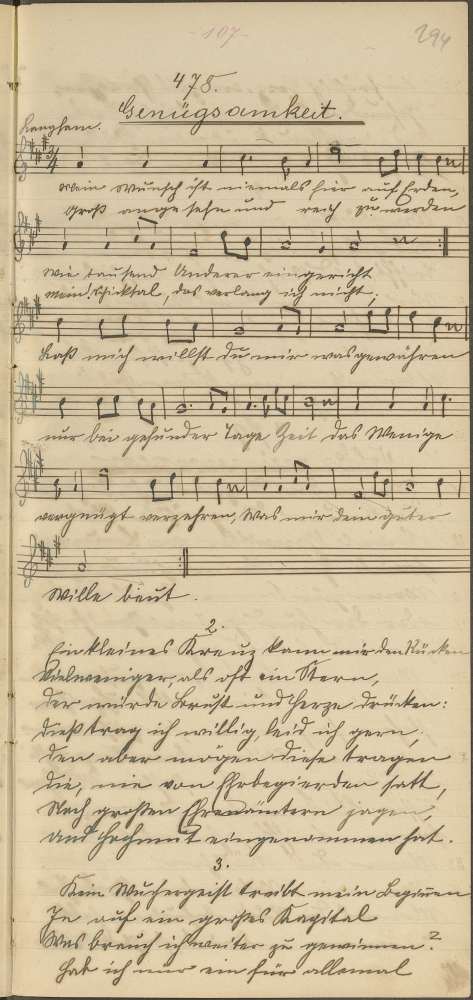 -107-
294
478.
Genügsamkeit.
Langsam.
Mein Wunsch ist niemals hier auf Erden,
groß angesehn und reich zu werden
wie tausend Anderer eingericht
mein Schicksal, das verlang ich nicht;
Laß mich willst du mir was gewähren
nur bei gesunder Tage Zeit das Wenige
vergnügt verzehren, Was mir dein guter
Wille beut.
2.
Ein kleines Kreuz kann mir den Rücken
Vielweniger, als oft ein Stern,
Der mürde Brust und Herze drücken:
Dieß trag ich willig, leid ich gern;
Den aber mögen diese tragen
Die, nie von Ehrbegierden satt,
Nach großen Ehrenämtern jagen,
und Hochmut eingenommen hat.
3.
Kein Wuchergeist treibt mein Beginnen
Je auf ein großes Kapital
Was brauch ich weiter zu gewinnen?
Hab ich nur ein für allemal